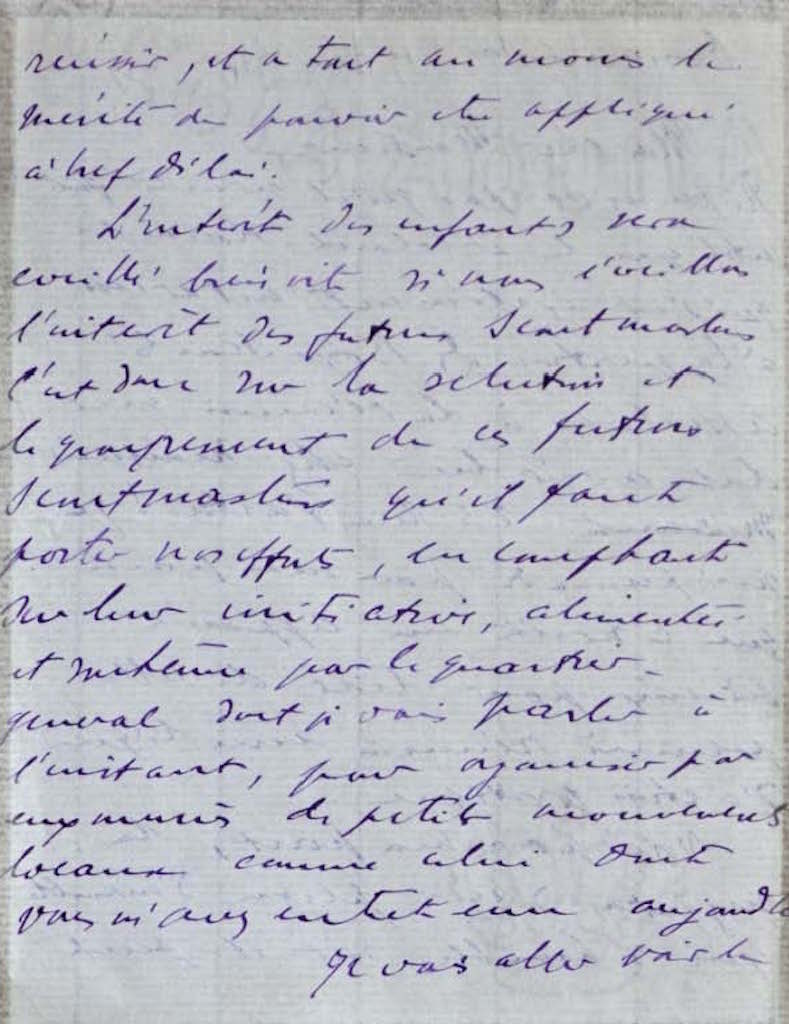 réussir, et a tout au moins le
mérite de pouvoir être appliqué
à bref délai.
L'intérêt des enfants sera
éveillé bien vite si nous éveillons
l'intérêt des futurs Scoutmasters
C'est donc sur la sélection et
le groupement de ces futurs
Scoutmasters qu'il faut
porter nos efforts, en comptant
sur leur initiative, alimentée
et soutenue par le quartier-
général dont je vais parler à
l'instant, pour organiser par
eux mêmes de petits mouvements
locaux comme celui dont
vous m'avez entretenu aujourd'h
Je vais aller voir le